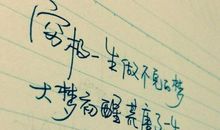 穷极一生做不完的梦
大梦初醒荒唐了一生